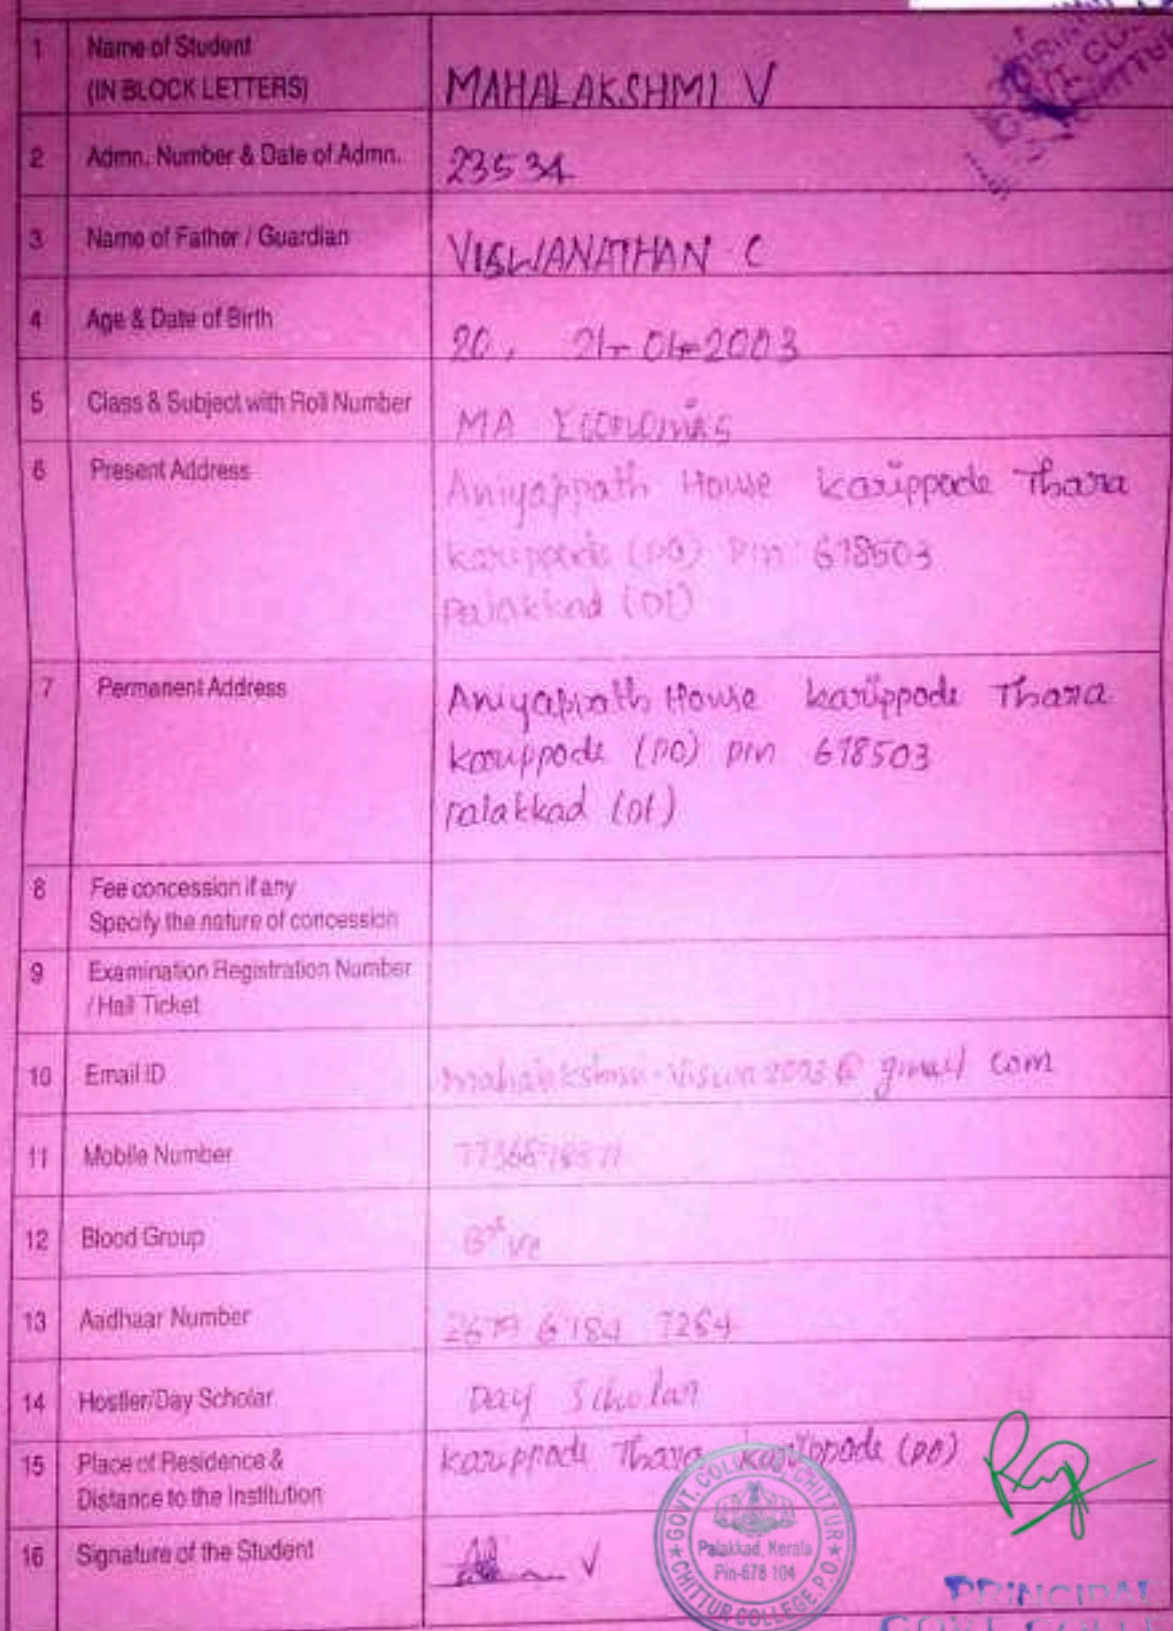 1 Name of Student
(IN BLOCK LETTERS) MAHALAKSHMI V
2 Admn. Number & Date of Admn. 23534
3 Name of Father / Guardian VISWANATHAN C
4 Age & Date of Birth 20, 21-01-2003
5 Class & Subject with Roll Number MA Economics
6 Present Address Aniyappath House karippode Thara
karippode (PO) pin 678503
palakkad (Dt)
7 Permanent Address Aniyappath House karippode Thara
karippode (PO) pin 678503
palakkad (Dt)
8 Fee concession if any
Specify the nature of concession
9 Examination Registration Number
/ Hall Ticket
10 Email ID gmail com
11 Mobile Number
12 Blood Group
13 Aadhaar Number
14 Hostler/Day Scholar Day Scholar
15 Place of Residence & karippode Thara karippode (PO)
Distance to the Institution
16 Signature of the Student V
GOVT. COLLEGE, CHITTUR
Palakkad, Kerala
Pin-678 104
CHITTUR COLLEGE P.O.
PRINCIPAL